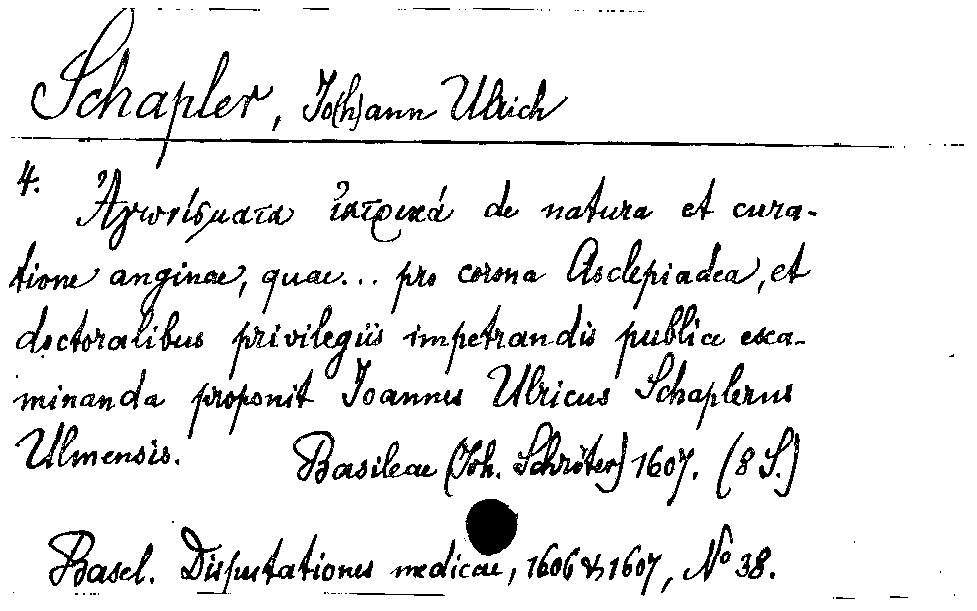 Schapler, Jo(h)ann Ulrich
4.
Ἀγωνίσματα ἰατρικά de natura et cura-
tione anginae, quae... pro corona Asclepiadea, et
doctoralibus privilegiis impetrandis publice exa-
minanda proponit Joannes Ulricus Schaplerus
Ulmensis.
Basileae (Joh. Schröter) 1607. (8 S.)
Basel. Disputationes medicae, 1606 & 1607, No 38.